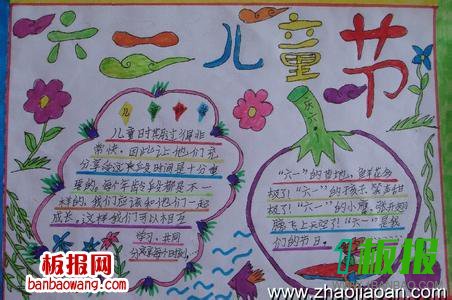 六一儿童节
儿
童
节
儿童时其过得非
常快。因此让他们充
分享受这段时间是十分重
要的。每个年龄段都是不一
样的,我们应该和他们一起
成长。这样我们可以相互
学习,共同
分享每个时刻。
庆六一
“六一”的花地,鲜花多
极了!“六一”的孩子,笑声甜
极了!“六一”的小鹰,张开翅
膀飞上天空了!“六一”是我
们的节日。
板报网
banbaowang.com
板报
www.zhaojiaoan.com